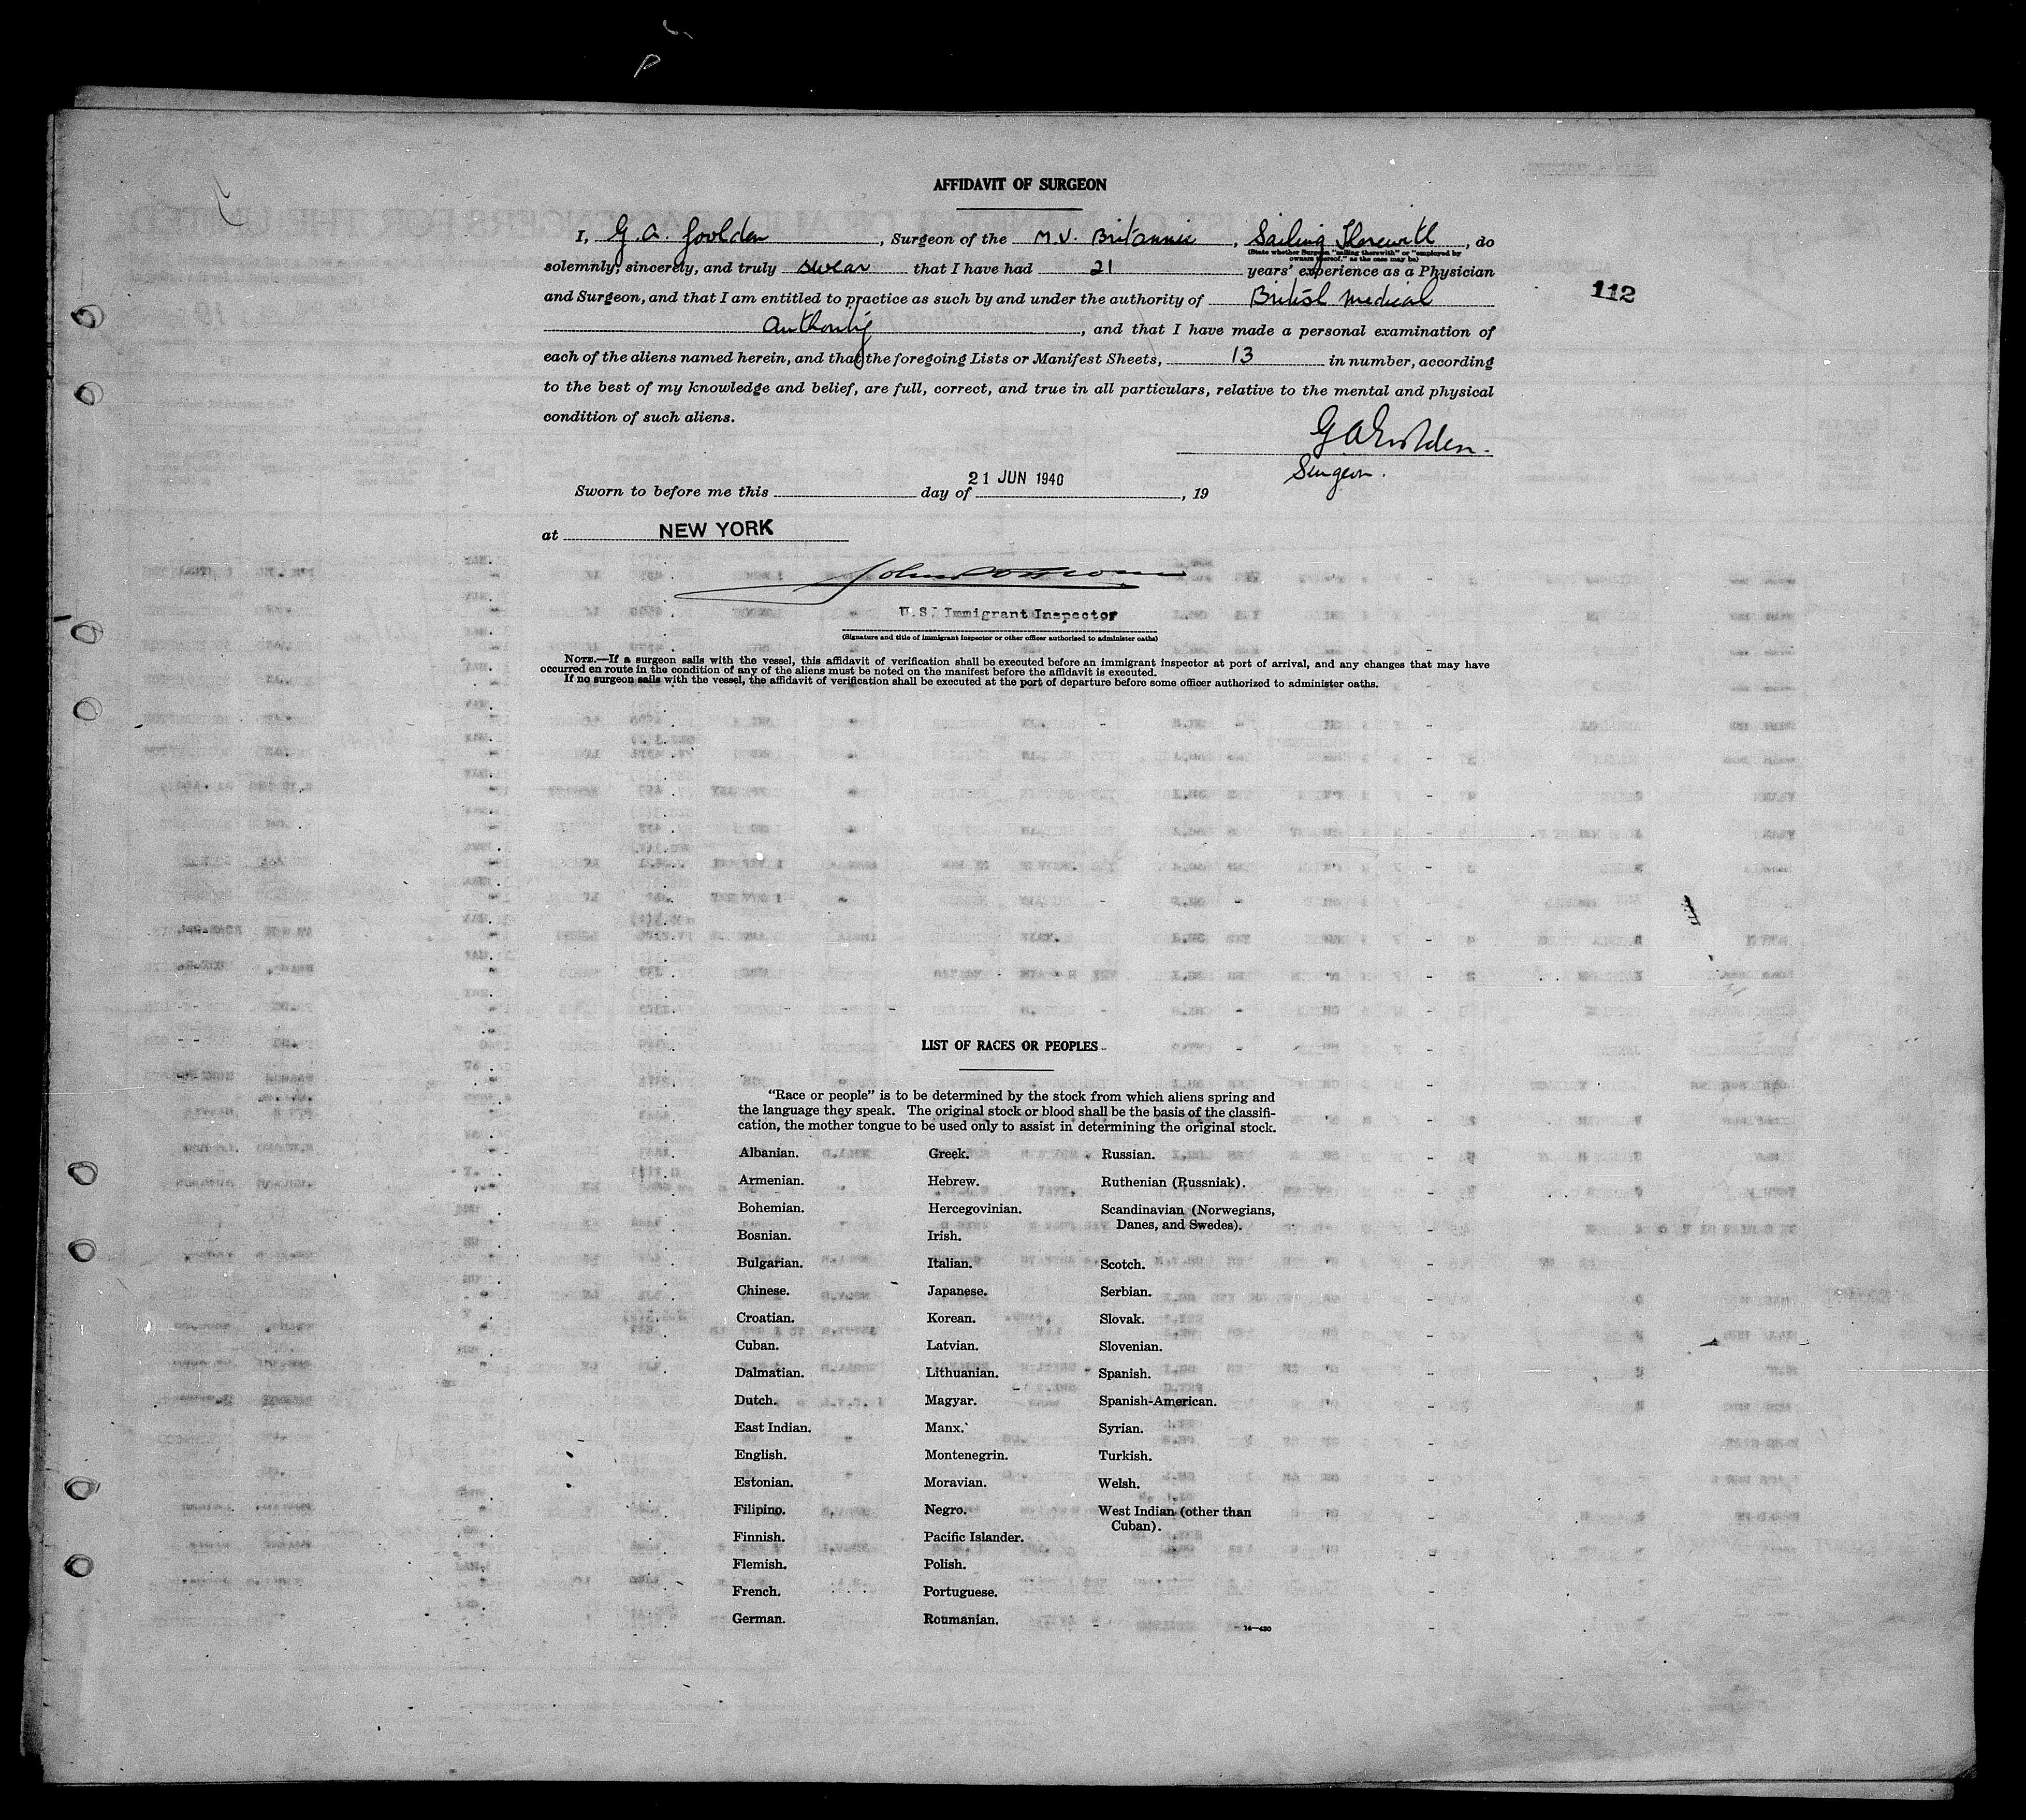 AFFIDAVIT OF SURGEON
I, G. A. Goolden, Surgeon of the M.V. Britannic, Sailing Therewith, do
(State whether Surgeon "sailing therewith" or "employed by
owners thereof," as the case may be)
solemnly, sincerely, and truly swear that I have had 21 years' experience as a Physician
and Surgeon, and that I am entitled to practice as such by and under the authority of British Medical
Authority, and that I have made a personal examination of
112
each of the aliens named herein, and that the foregoing Lists or Manifest Sheets, 13 in number, according
to the best of my knowledge and belief, are full, correct, and true in all particulars, relative to the mental and physical
condition of such aliens.
G A Goolden.
Surgeon.
21 JUN 1940
Sworn to before me this day of , 19
at NEW YORK
U.S. Immigrant Inspector
(Signature and title of immigrant inspector or other officer authorized to administer oaths)
NOTE.—If a surgeon sails with the vessel, this affidavit of verification shall be executed before an immigrant inspector at port of arrival, and any changes that may have
occurred en route in the condition of any of the aliens must be noted on the manifest before the affidavit is executed.
If no surgeon sails with the vessel, the affidavit of verification shall be executed at the port of departure before some officer authorized to administer oaths.
LIST OF RACES OR PEOPLES
"Race or people" is to be determined by the stock from which aliens spring and
the language they speak. The original stock or blood shall be the basis of the classifi-
cation, the mother tongue to be used only to assist in determining the original stock.
Albanian.
Armenian.
Bohemian.
Bosnian.
Bulgarian.
Chinese.
Croatian.
Cuban.
Dalmatian.
Dutch.
East Indian.
English.
Estonian.
Filipino.
Finnish.
Flemish.
French.
German.
Greek.
Hebrew.
Hercegovinian.
Irish.
Italian.
Japanese.
Korean.
Latvian.
Lithuanian.
Magyar.
Manx.
Montenegrin.
Moravian.
Negro.
Pacific Islander.
Polish.
Portuguese.
Roumanian.
Russian.
Ruthenian (Russniak).
Scandinavian (Norwegians,
Danes, and Swedes).
Scotch.
Serbian.
Slovak.
Slovenian.
Spanish.
Spanish-American.
Syrian.
Turkish.
Welsh.
West Indian (other than
Cuban).
14—430